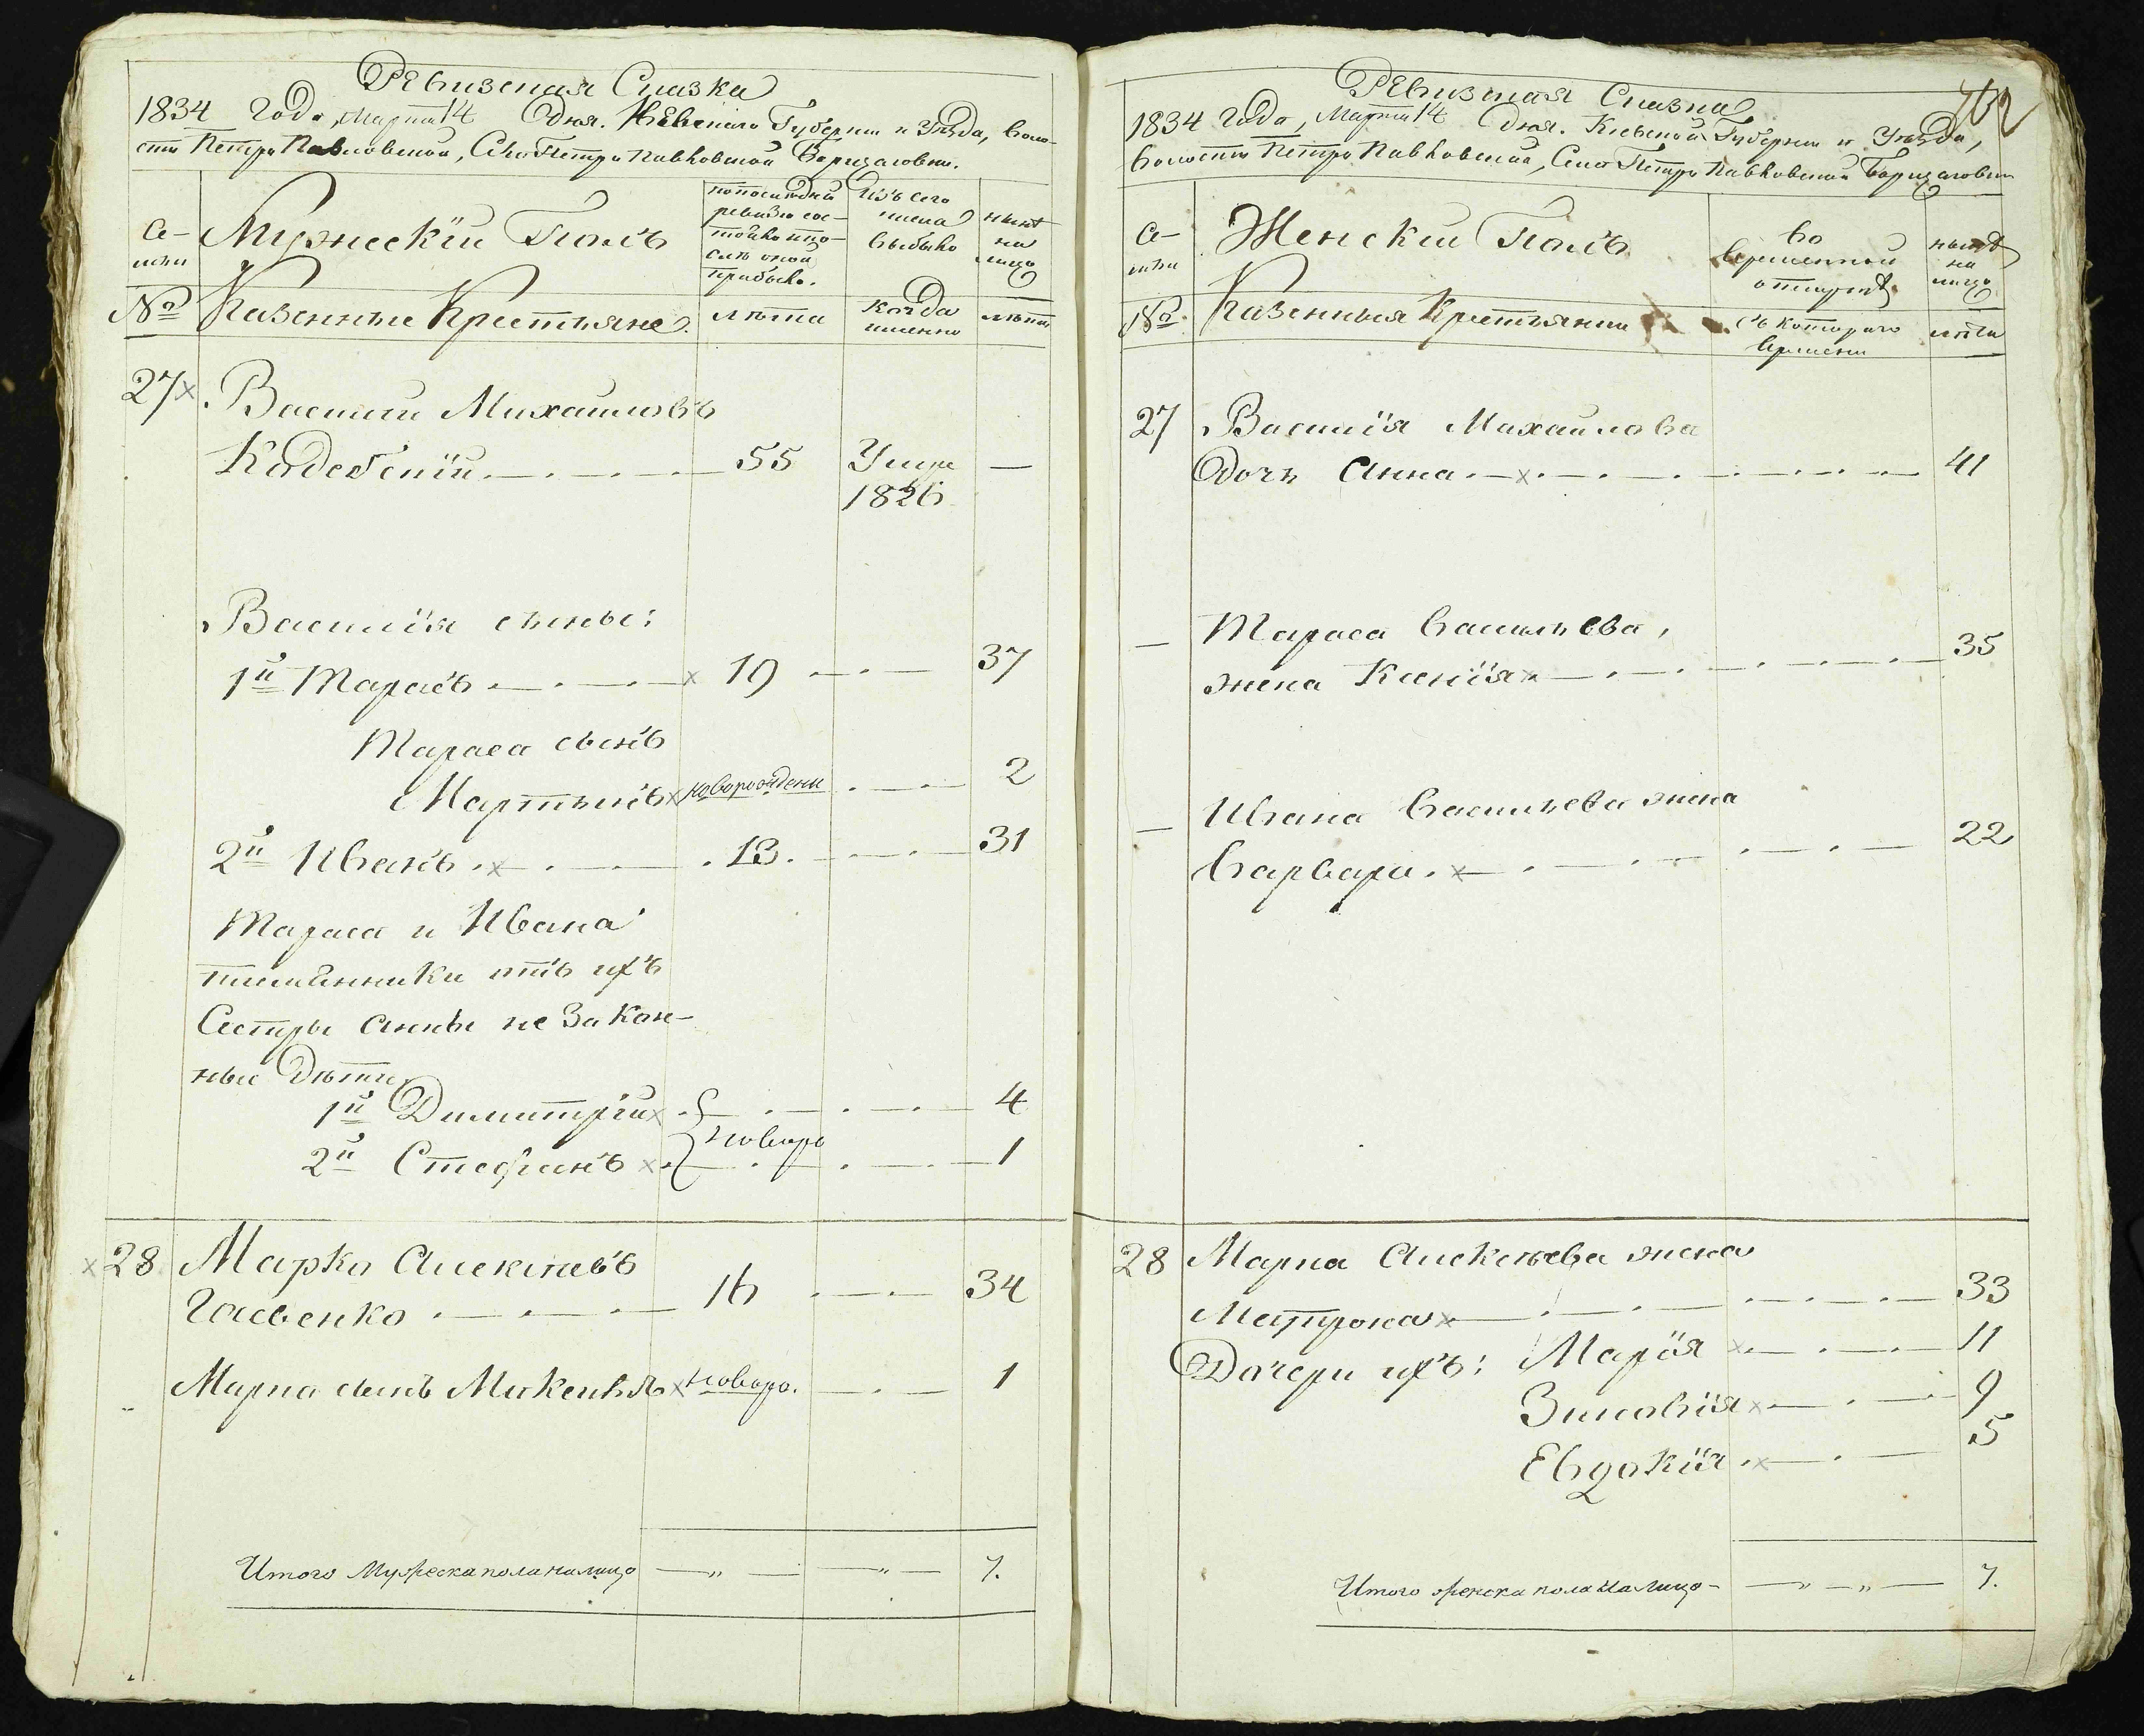 Ревизская Сказка
1834 Года, Марта 14 Дня. Кіевской Губерніи и Уѣзда, Воло-
сти Петро Павловской, Села Петро Павловской Борщаговки.
Се-
мьи
Мужескій Полъ
по последней
ревизіи сос-
тояло и по-
слѣ оной
прибыло.
Изъ сего
числа
выбыло
нынѣ
на
лицо
№
Казенные Крестьяне.
лѣта
когда
именно
лѣта
27 Василій Михайловъ
Кадебскій 55 Умре —
1826
Василія сыны:
1й Тарасъ 19 37
Тараса сынъ
Мартынъ новорожденъ 2
2й Иванъ 13. 31
Тараса и Ивана
племянники отъ ихъ
Сестры Анны не Закон-
ные Дѣти,
1й Димитрій 4
новоро
2й Стефанъ 1
28 Марко Алексѣевъ
16 34
Марка сынъ новоро. 1
Итого Мужеска пола налицо — „ — — „ — 7.
702
Ревизская Сказка
1834 Года, Марта 14 Дня. Кіевской Губерніи и Уѣзда,
Волости Петро Павловской, Села Петро Павловской Борщаговки
Се-
мьи
Женскій Полъ
Во
временной
отлучкѣ
нынѣ
на
лицо
№
Казенныя Крестьянки
съ котораго
времени
лѣта
27 Василія Михайлова
Дочь Анна 41
— Тараса Васильева,
жена Ксенія 35
— Ивана Васильева жена
Варвара 22
28 Марка Алексѣева жена
Матрона 33
Дочери ихъ: Марія 11
Зиновія 9
Евдокія 5
Итого женска пола налицо — „ — „ — 7.